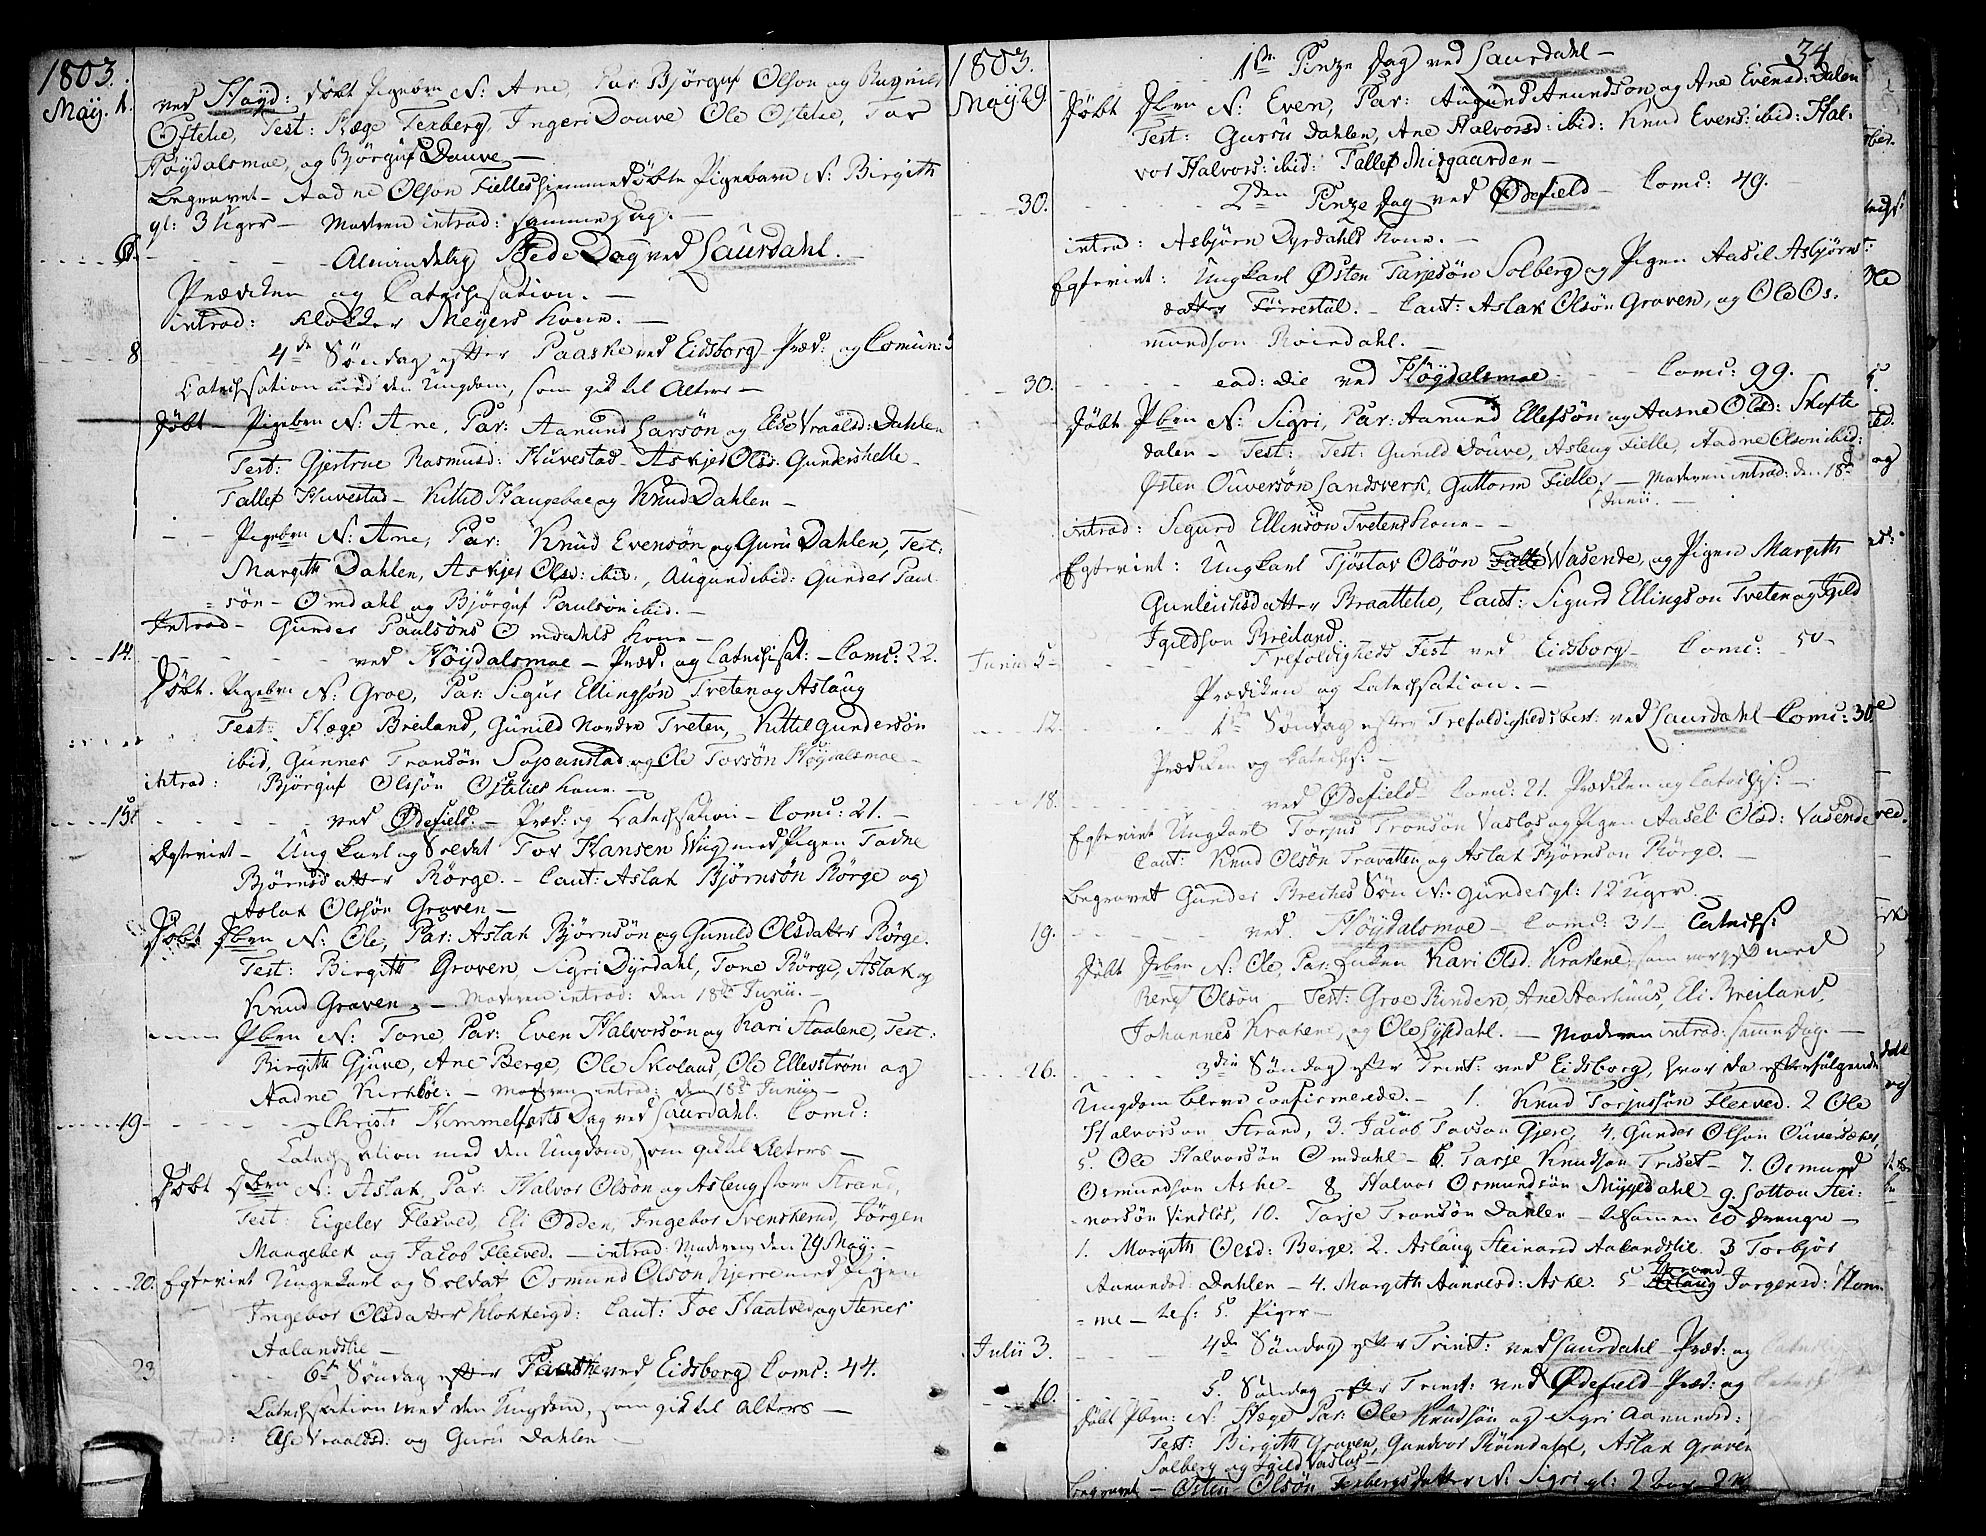 1803.
May. 1. ved Høyd: døbt Pigebrn N: Ane, Par: Bjørguf Olson og Ragnild
Ostelie, Test: Hæge Texberg, Ingeri Douve Ole Ostelie, Tor
Høydalsmoe, og Bjørguf Douve —
Begravet — Aadne Olson Fielles hiemmedøbte Pigebarn N: Birgith
gl: 3 Uger — Moderen introd: samme Dag. —
6. Almindelig Bede Dag ved Laurdahl. —
Prædiken og Catechisation. —
introd: Klokker Meyers Kone. —
8 4de Søndag efter Paaske ved Eidsborg Præd: og Comun:
Catechisation med den Ungdom, som gik til Alters —
Døbt — Pigebrn N: Ane, Par: Aamund Larsøn og Else Vraalsd: Dahlen
Test: Gjertrue Rasmusd: Huvestad — Askjer Olsd: Gundershelle
Tallef Huvestad — Kittil Haugeboe og Knud Dahlen —
Pigebrn N: Ane, Par: Knud Evensøn og Guru Dahlen, Test:
Margith Dahlen, Askjer Olsd: ibid:, Augund ibid: Gunder Paul
=søn — Omdahl og Bjørguf Paulsøn ibid. —
Introd — Gunder Paulsøns Omdahls Kone —
14. ved Høydalsmoe — Præd: og Catechisat: — Comc: 22.
Døbt. Pigebrn N: Groe, Par: Sigur Ellingsøn Tveten og Aslaug
Test: Hæge Breiland, Gunild Nordre Tveten, Kittil Gundersøn
ibid, Gunner Tronsøn Sopanstad og Ole Torsøn Høydalsmoe —
introd: Bjørguf Olsøn Ostelies Kone. —
15. ved Ødefield. — Præd: og Catechisation — Comc: 21. —
Egteviet — Ung karl og Soldat Tor Hansen Wiig med Pigen Tadne
Bjørnsdatter Rørge. — Caut: Aslak Bjørnsøn Rørge og
Aslak Olsøn Groven —
Døbt Dbrn N: Ole, Par: Aslak Bjørnsøn og Gunild Olsdatter Rørge.
Test: Birgith Groven, Sigri Dyrdahl, Tone Rørge, Aslak og
Knud Groven. — Moderen introd: den 18de Junii. —
Pbrn N: Tone, Par: Even Halvorsøn og Kari Staalene, Test:
Birgith Gjuve, Ane Berge, Ole Skolaus, Ole Ellevstrøm og
Aadne Kirkboe. — Moderen introd: den 18de Junii —
19 Christi Himmelfarts Dag ved Laurdahl. Comc:
Catechisation med den Ungdom, som gik til Alters —
Døbt Dbrn N: Aslak, Par: Halvor Olsøn og Asleug store Strand,
Test: Eigelev Flesved, Eli Odden, Ingebor Svenkerud, Jørgen
Mangebek og Jacob Flesved. — introd: Moderen den 29 May. —
20. Egteviet Ungekarl og Soldat Osmund Olson Kjerre med Pigen
Ingebor Olsdatter Klokkergd: Caut: Joe Haatved og Stener
Aalandslie —
23 6te Søndag efter Paaske ved Eidsborg Comc: 44.
Catechisation med den Ungdom, som gik til Alters —
introd: Else Vraalsd: og Guru Dahlen —
34
1803.
May 29. 1ste Pinze Dag ved Laurdahl —
Døbt Dbrn N: Even, Par: Augund Amundsøn og Ane Evensd: Dalen
Test: Gurru Dahlen, Ane Halvorsd: ibid: Knud Evens: ibid: Hal-
vor Halvors: ibid: Tallef Midgaarden —
30. 2den Pinze Dag ved Ødefield — Comc: 49.
introd: Asbjørn Dyrdahls Kone. —
Egteviet: Ungkarl Østen Tarjesøn Solberg og Pigen Aasil Asbjørns-
datter Førrestøl. — Caut: Aslak Olsøn Groven, og Ole Os-
mundson Roindahl. —
30. eod: die ved Høydalsmoe — Comc: 99.
Døbt Pbrn N: Sigri, Par: Aamund Ellefsøn og Aasne Olsd: Skofte
dalen — Test: Test: Gunild Douve, Asleug Fielle, Aadne Olson ibid:
Østen Ouversøn Landsverk, Guttorm Fielle. — Moderen introd: den 18de
Junii. —
introd: Sigurd Ellinsøn Tvetens Kone —
Egteviet: Ungkarl Tjøstov Olsøn Fielle Wasende, og Pigen Margith
Gunleichsdatter Braattelie, Caut: Sigurd Ellingson Tveten og Igild
Igildson Breiland.
Junii 5 — Trefoldigheds Fest ved Eidsborg — Comc: 50 —
Prædiken og Catechisation. —
12. 1ste Søndag efter Trefoldighedsfest: ved Laurdahl — Comc: 30
Prædiken og Catechis: —
18. ved Ødefield — Comc: 21. Prædiken og Catechis: —
Egteviet Ungkarl Torjus Tronsøn Vaslos og Pigen Aasel Olsd: Vasende
Caut: Knud Olsøn Travatten og Aslak Bjørnson Rørge. —
Begravet Gunder Breches Søn N: Gunder gl: 12 Uger.
19. ved Høydalsmoe — Comc: 31 — Catechis:
Døbt Drbrn N: Ole, Par: Enken Kari Olsd. Krakene, som var gift med
Bengt Olsøn — Test: Groe Rinden, Ane Aarhuus, Eli Breiland,
Johannes Krakene, og Ole Lysdahl. — Moderen introd: samme Dag. —
26. 3die Søndag efter Trinit: ved Eidsborg, hvor da efterfølgende
Ungdom bleve confirmerede. — 1. Knud Torjussøn Flesved. 2 Ole
Halvorson Strand, 3. Jacob Torson Gjere, 4. Gunder Olson Ouversæter,
5. Ole Halvorsøn Omdahl — 6. Tarje Knudson Triset — 7. Osmund
Osmundson Aske — 8 Halvor Osmundsøn Mygedahl — 9. Lotton Stei:
narsøn Vindlos, 10. Tarje Tronsøn Dahlen — tilsammen 10 Drenge —
1. Margith Olsd: Berge. 2. Aslaug Steinarsd Aalandslie. 3 Torbjør
Aamundsd: Dahlen — 4. Margith Aannesd: Aske. 5 Aslaug Jorgensd: Hom
=me — tils: 5. Piger —
Julii 3. 4de Søndag efter Trinit: ved Laurdahl — Præd: og Catechis
10. 5. Søndag efter Trinit: ved Ødefield — Præd: og Catech
Døbt Pbrn: N: Hæge Par: Ole Knudsøn og Sigri Aamunsd:
Test: Birgith Groven, Gundvor Roindahl, Aslak Groven
Solberg og Igild Vaslos —
Begravet — Østen Olsøn Texbergs Datter N: Sigri gl: 2